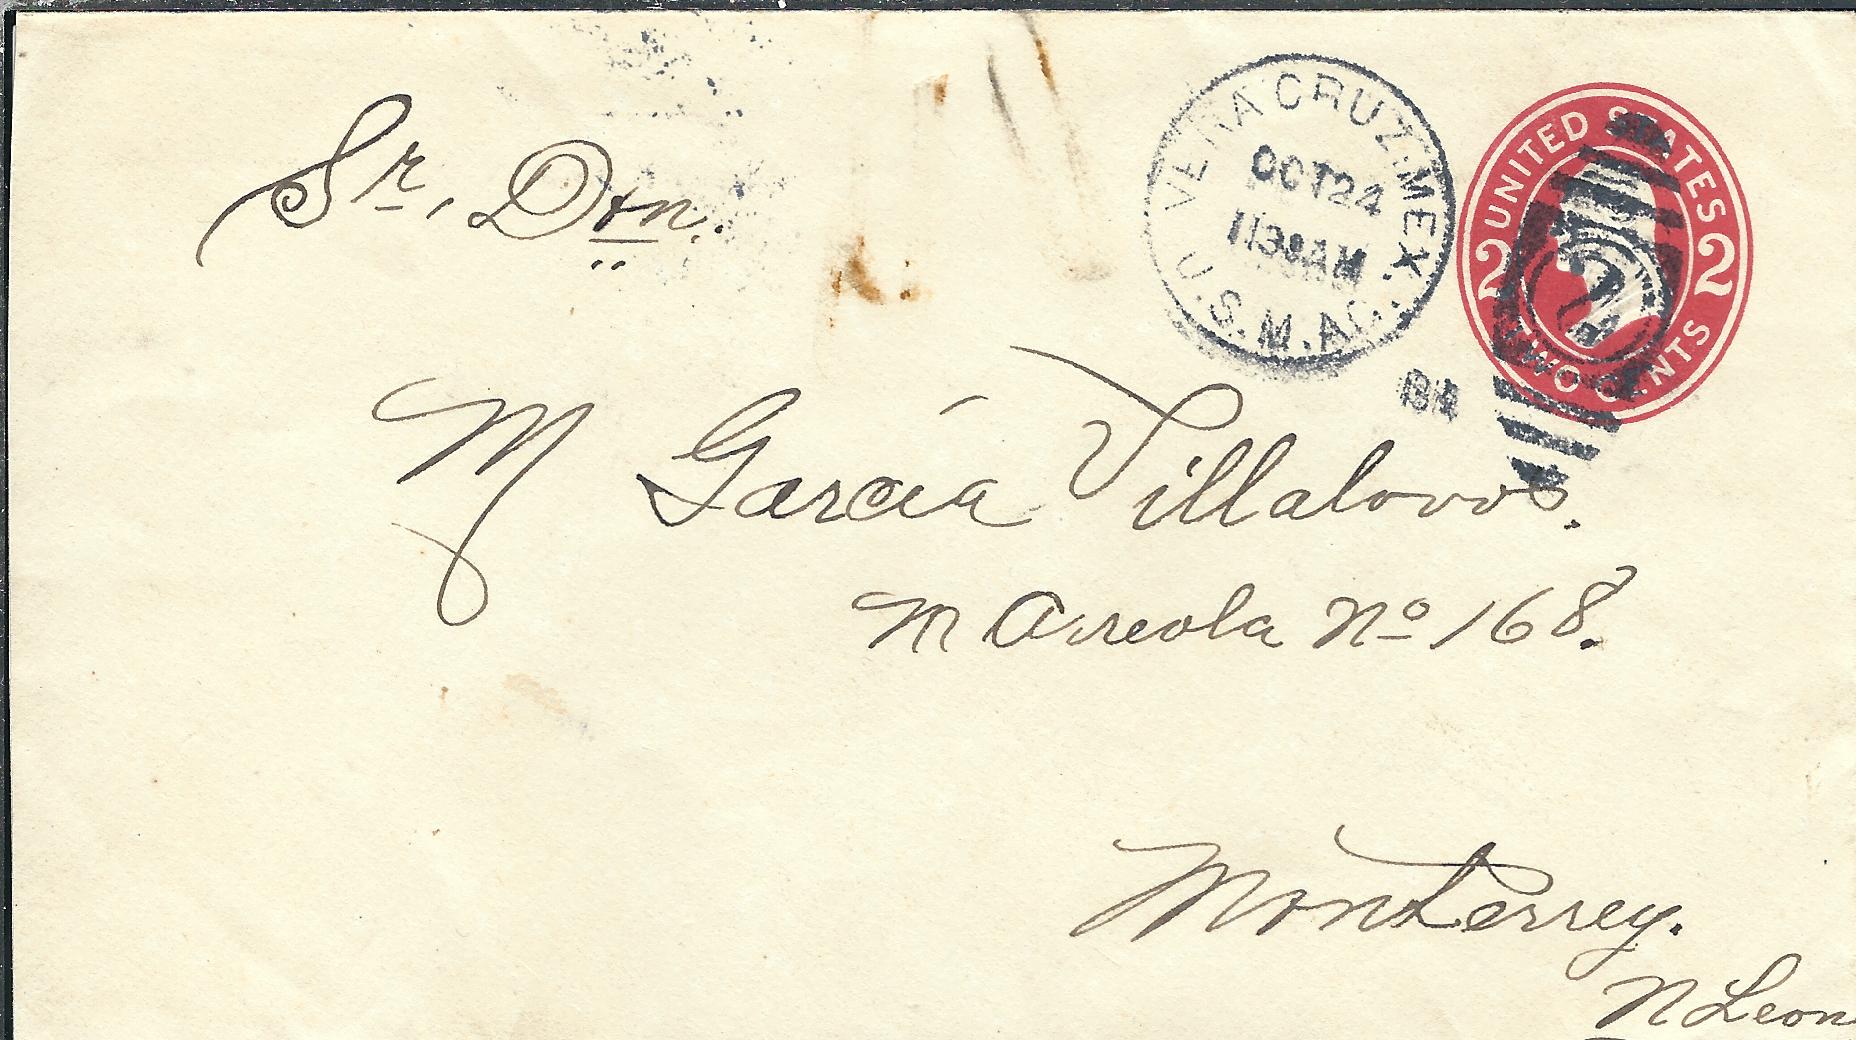 VERA CRUZ. MEX.
OCT 24
1130 AM
U.S.M.AG.
UNITED STATES
2 2
TWO CENTS
2
Sr. Don.
M García Villalovos.
M Arreola No 168.
Monterrey.
N Leon